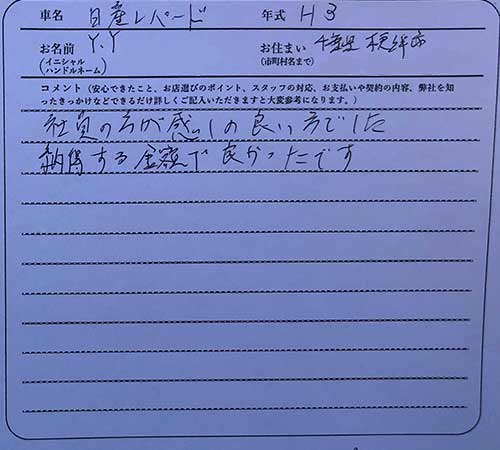 車名 日産レパード 年式 H3
お名前 Y.Y お住まい 千葉県 横芝
(イニシャル (市町村名まで)
ハンドルネーム)
コメント(安心できたこと、お店選びのポイント、スタッフの対応、お支払いや契約の内容、弊社を知
ったきっかけなどできるだけ詳しくご記入いただきますと大変参考になります。)
社員の方が感じの良い方でした
納得する金額で良かったです